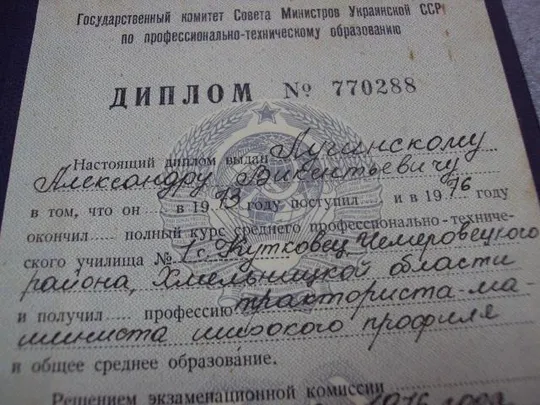 Государственный комитет Совета Министров Украинской ССР
по профессионально-техническому образованию
ДИПЛОМ № 770288
Настоящий диплом выдан Лучинскому
Александру Викентьевичу
в том, что он в 1973 году поступил и в 1976 году
окончил полный курс среднего профессионально-техниче-
ского училища № 1 с. Кутковец Чемеровецкого
района, Хмельницкой области
и получил профессию тракториста-ма-
шиниста широкого профиля
и общее среднее образование.
Решением экзаменационной комиссии
1976 года